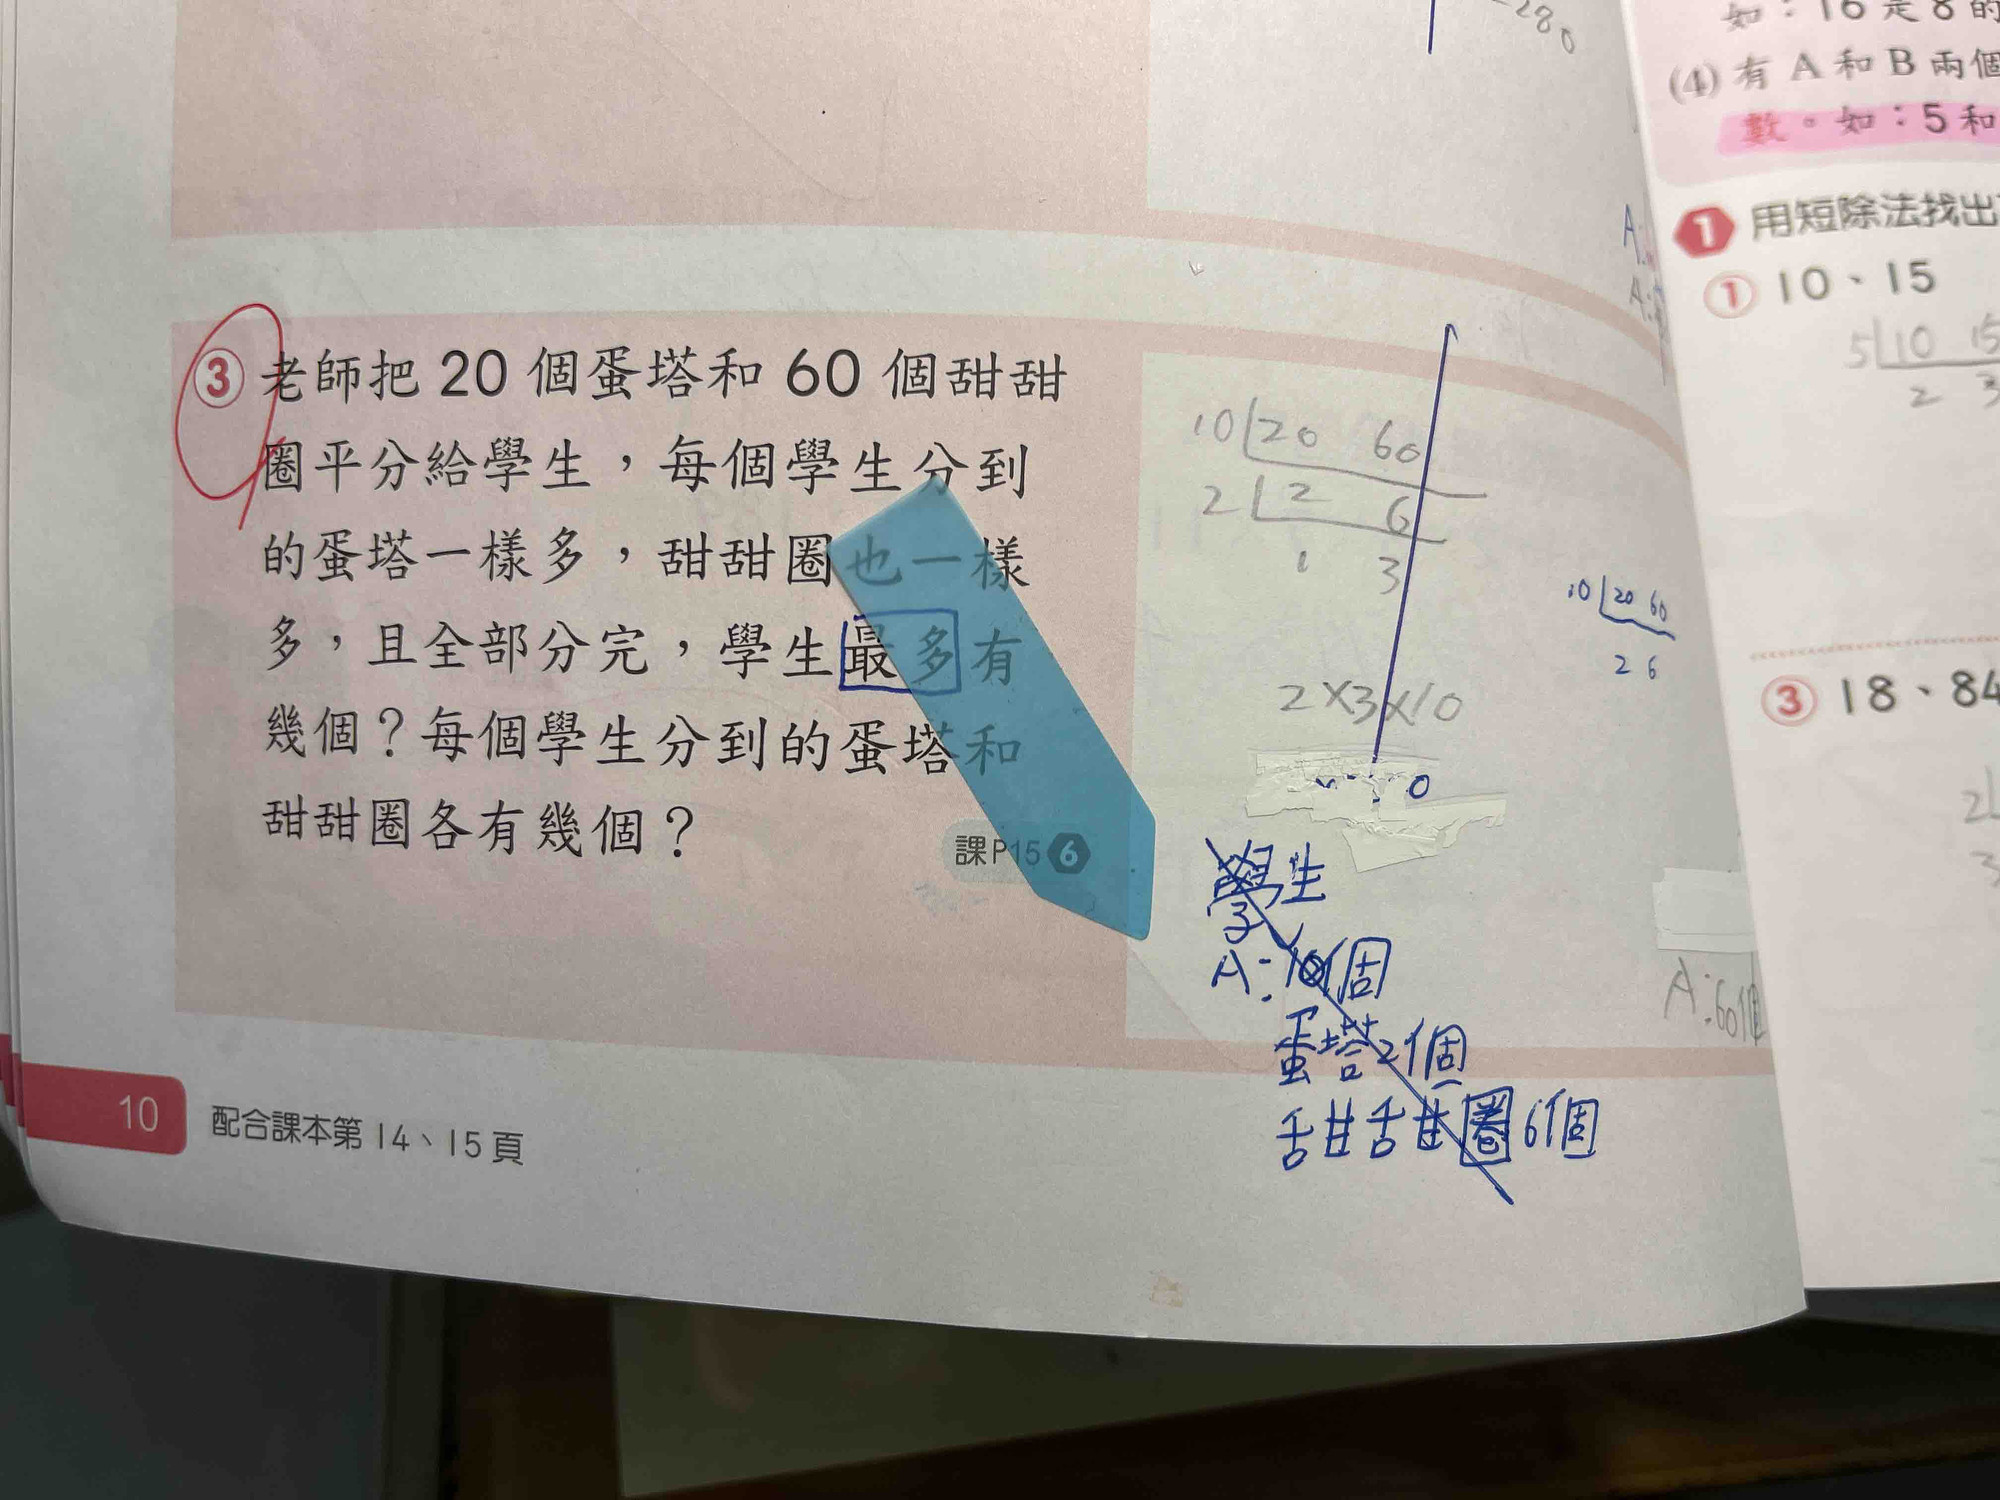 -280
如：16是8的
(4) 有 A 和 B 兩個
數。如：5和
1 用短除法找出
① 10、15
5 10 15
2 3
③ 18、84
2
3
③ 老師把 20 個蛋塔和 60 個甜甜
圈平分給學生，每個學生分到
的蛋塔一樣多，甜甜圈也一樣
多，且全部分完，學生最多有
幾個？每個學生分到的蛋塔和
甜甜圈各有幾個？
課P15 6
10 20 60
2 2 6
1 3
2×3×10
10 20 60
2 6
學生
A：10個
蛋塔2個
甜甜圈6個
A：60個
10
配合課本第 14、15 頁